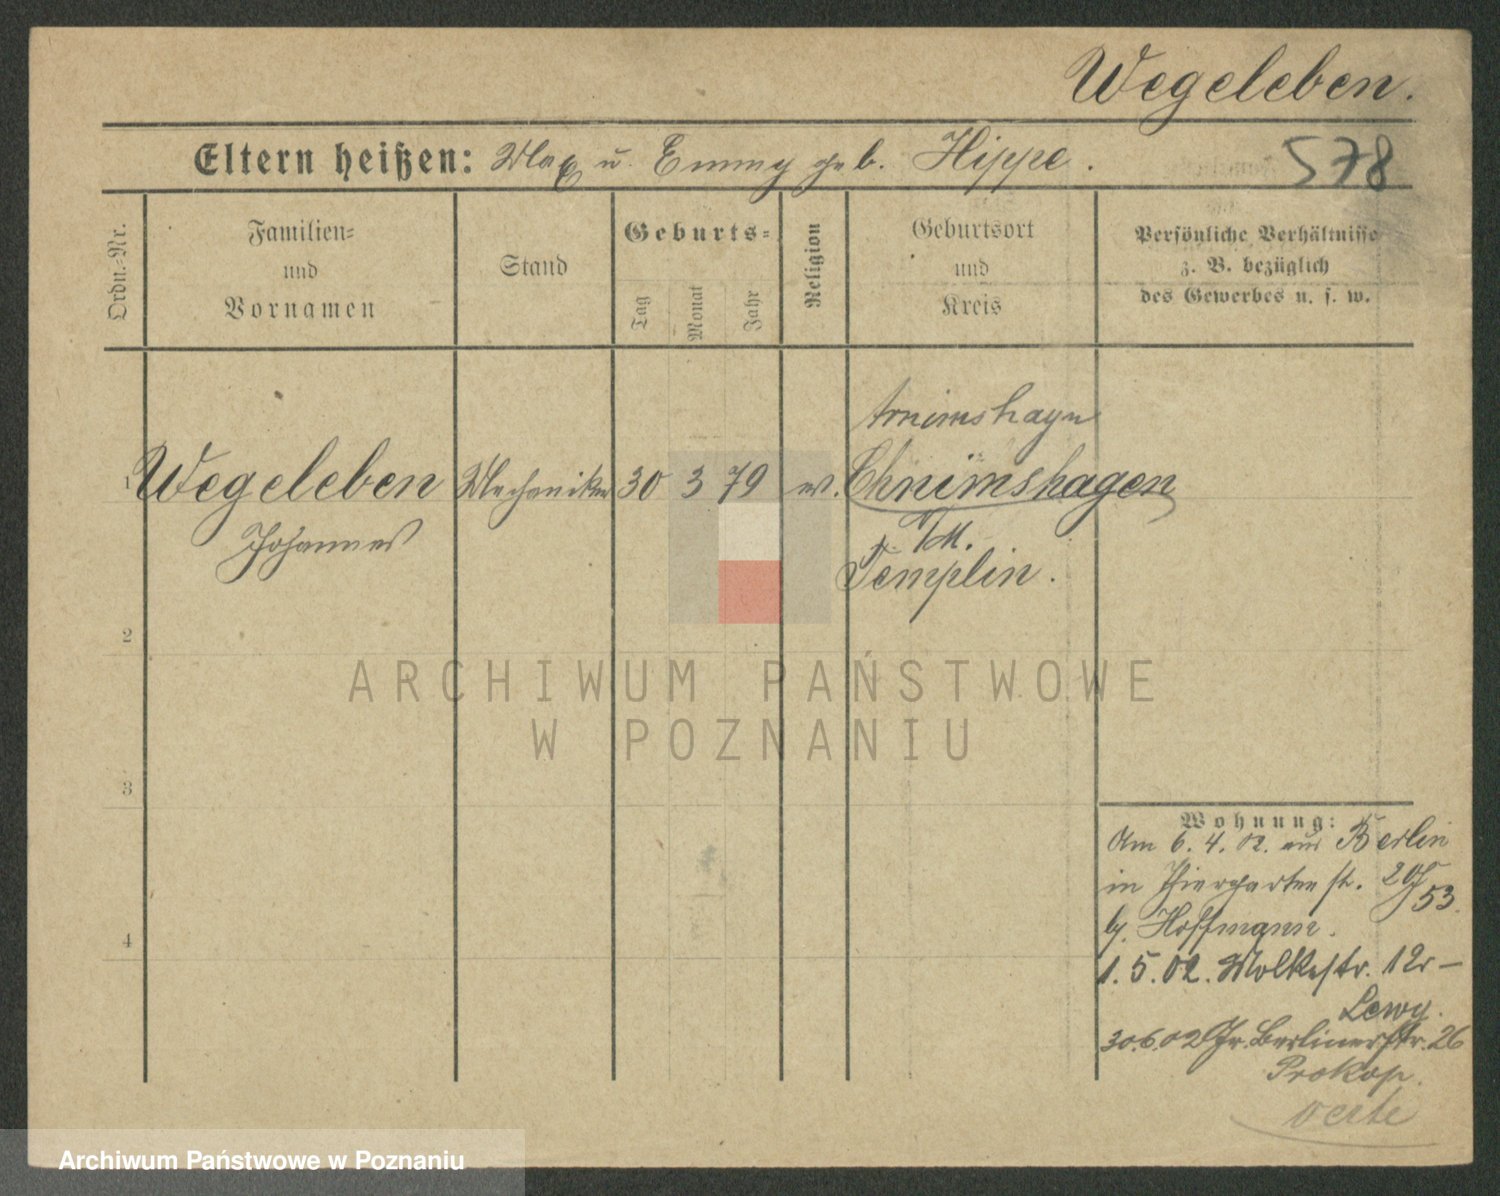 Wegeleben.
Eltern heißen: Max u. Emmy geb. Hippe.
578
Ordn.-Nr.
Familien-
und
Vornamen
Stand
Geburts-
Tag
Monat
Jahr
Religion
Geburtsort
und
Kreis
Persönliche Verhältnisse
z. B. bezüglich
des Gewerbes u. s. w.
Arnimshagen
1 Wegeleben Mechaniker 30 3 79 ev. Chnimshagen
Johannes
Templin.
2
3
4
Wohnung:
Am 6. 4. 02. aus Berlin
in Thiergartenstr.
b. Hoffmann.
1. 5. 02. Molkestr. 12r –
Lewy.
30.6.02 Gr. Berlinerstr. 26
Prokop.
ARCHIWUM PAŃSTWOWE
W POZNANIU
Archiwum Państwowe w Poznaniu